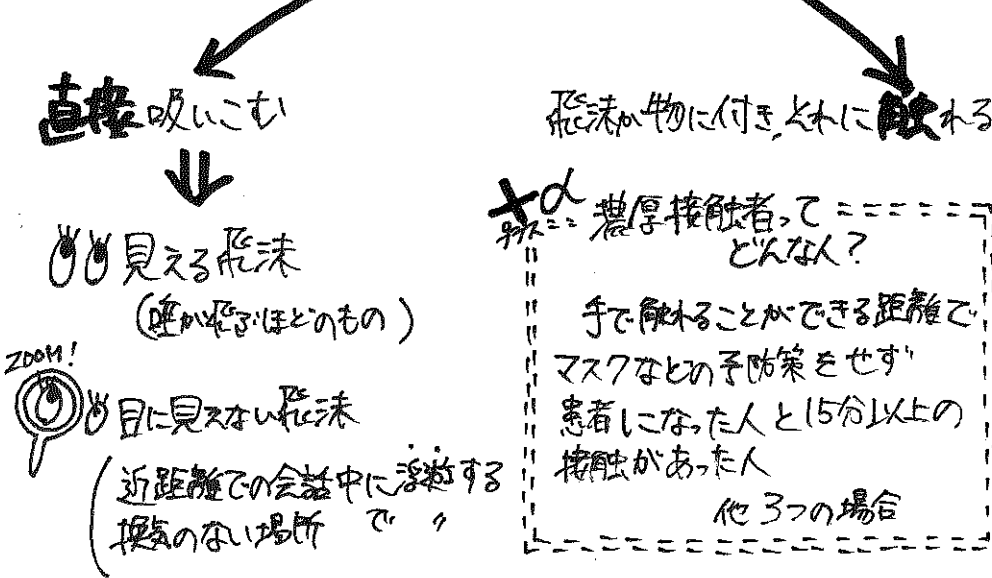 直接吸いこむ
見える飛沫
(唾が飛ぶほどのもの)
ZOOM!
目に見えない飛沫
近距離での会話中に浮遊する
換気のない場所で 〃
飛沫が物に付き、それに触れる
+α
プラス
濃厚接触者って
どんな人?
手で触れることができる距離で
マスクなどの予防策をせず
患者になった人と15分以上の
接触があった人
他3つの場合